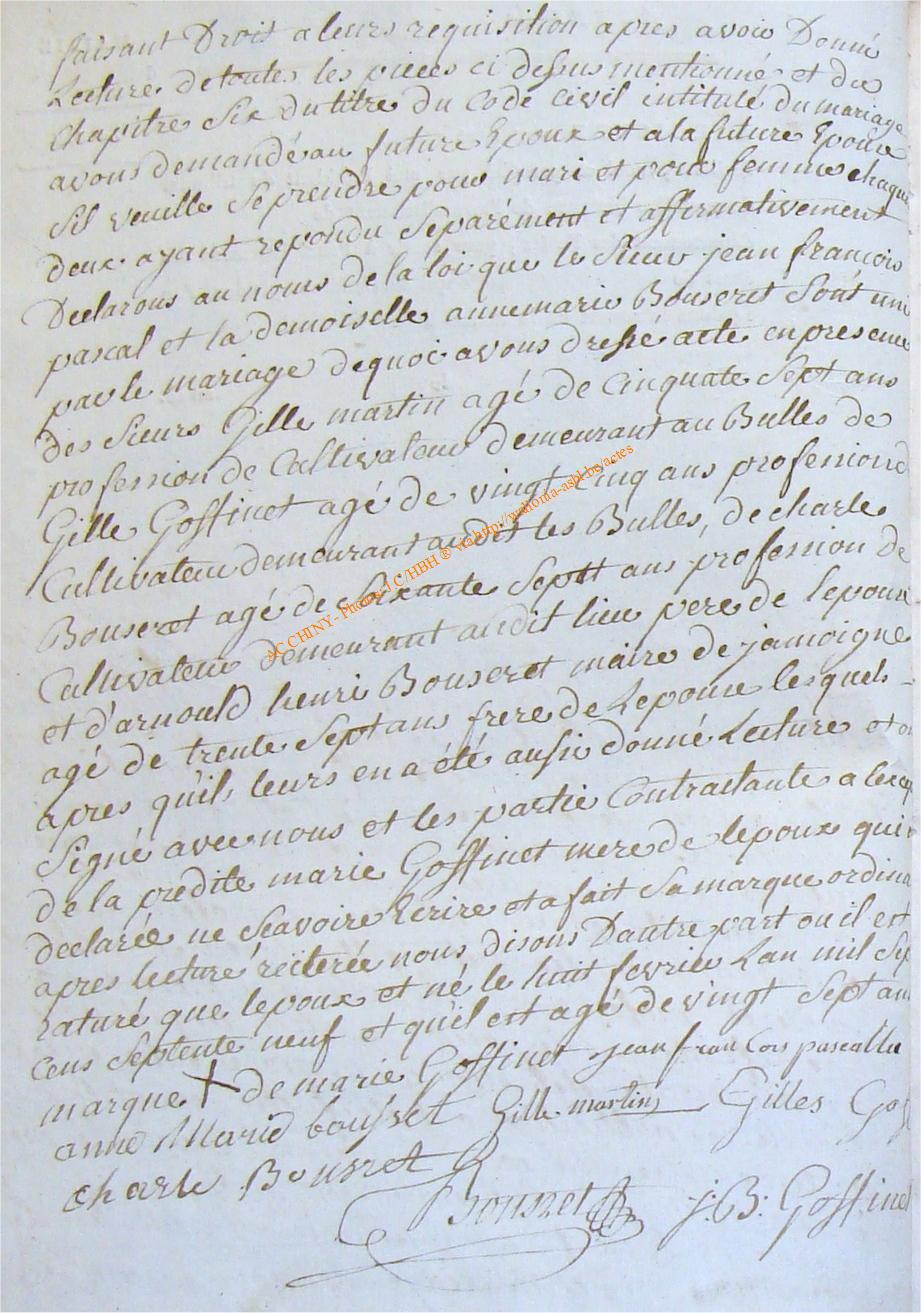 faisant Droit a leurs requisition apres avoir Donné
Lecture de toutes les pieces ci dessus mentionné et du
Chapitre Six du titre du Code Civil intitulé du mariage
avons demandé au future Epoux et a la future Epouse
Sil veuille Se prendre pour mari et pour femme chaque
deux ayant repondu Separément et affirmativement
Declarons au noms de la loi que le Sieur jean francois
pascal et la demoiselle annemarie Bouseret Sont unie
par le mariage de quoi avons dressé acte en presence
des Sieurs Gille martin agé de Cinquate Sept ans
profession de Cultivateur demeurant au Bulles de
Gille Goffinet agé de vingt Cinq ans profession d
Cultivateur demeurant audit les Bulles, de charle
Bouseret agé de Soixante Septt ans profession de
Cultivateur demeurant audit lieu pere de lepouse
et d'arnould henri Bouseret maire de jamoigne
agé de trente Sept ans frere de Lepouse lesquels
apres qu'il leurs en a été aussi donné Lecture et on
Signé avec nous et les partie Contractante a lexcep
de la predite marie Goffinet mere de lepoux qui
declarée ne Scavoire Ecrire et a fait Sa marque ordina
apres lecture reiterée nous disons Dautre part ou il est
raturé que lepoux et né le huit fevrier Lan mil Sep
cens Septente neuf et qu'il est agé de vingt Sept ans
marque X de marie Goffinet jean francois pascal
anne Marie bousret Gille martin Gilles Gof
charle Bousret
Bousret J: B: Goffinet
AC CHINY - Photos J C/HBH ® via http://wallonia-asbl.be/actes